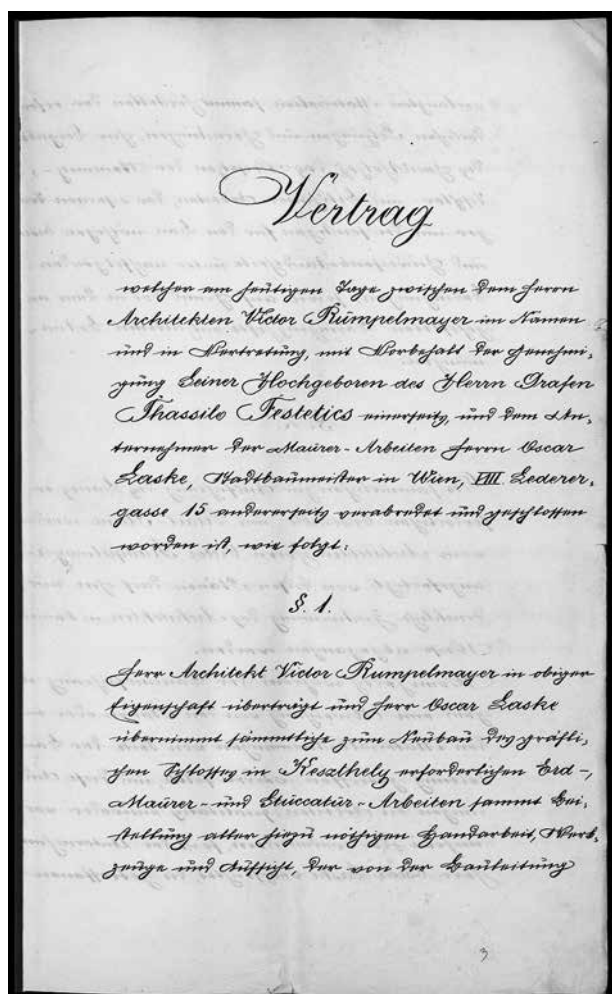 Vertrag
welcher am heutigen Tage zwischen dem Herrn
Architekten Victor Rumpelmayer im Namen
und in Vertretung, mit Vorbehalt der Genehmi-
gung Seiner Hochgeboren des Herrn Grafen
Thassilo Festetics einerseits, und dem Un-
ternehmer der Maurer-Arbeiten Herrn Oscar
Laske, Stadtbaumeister in Wien, VIII Lederer-
gasse 15 andererseits verabredet und geschlossen
worden ist, wie folgt:
§. 1.
Herr Architekt Victor Rumpelmayer in obiger
Eigenschaft überträgt und Herr Oscar Laske
übernimmt sämmtliche zum Neubau des gräfli-
chen Schlosses in Keszthely erforderlichen Erd-,
Maurer- und Stuccatur-Arbeiten sammt Bei-
stellung aller hiezu nöthigen Handarbeit, Werk-
zeuge und Aufsicht, der von der Bauleitung
3